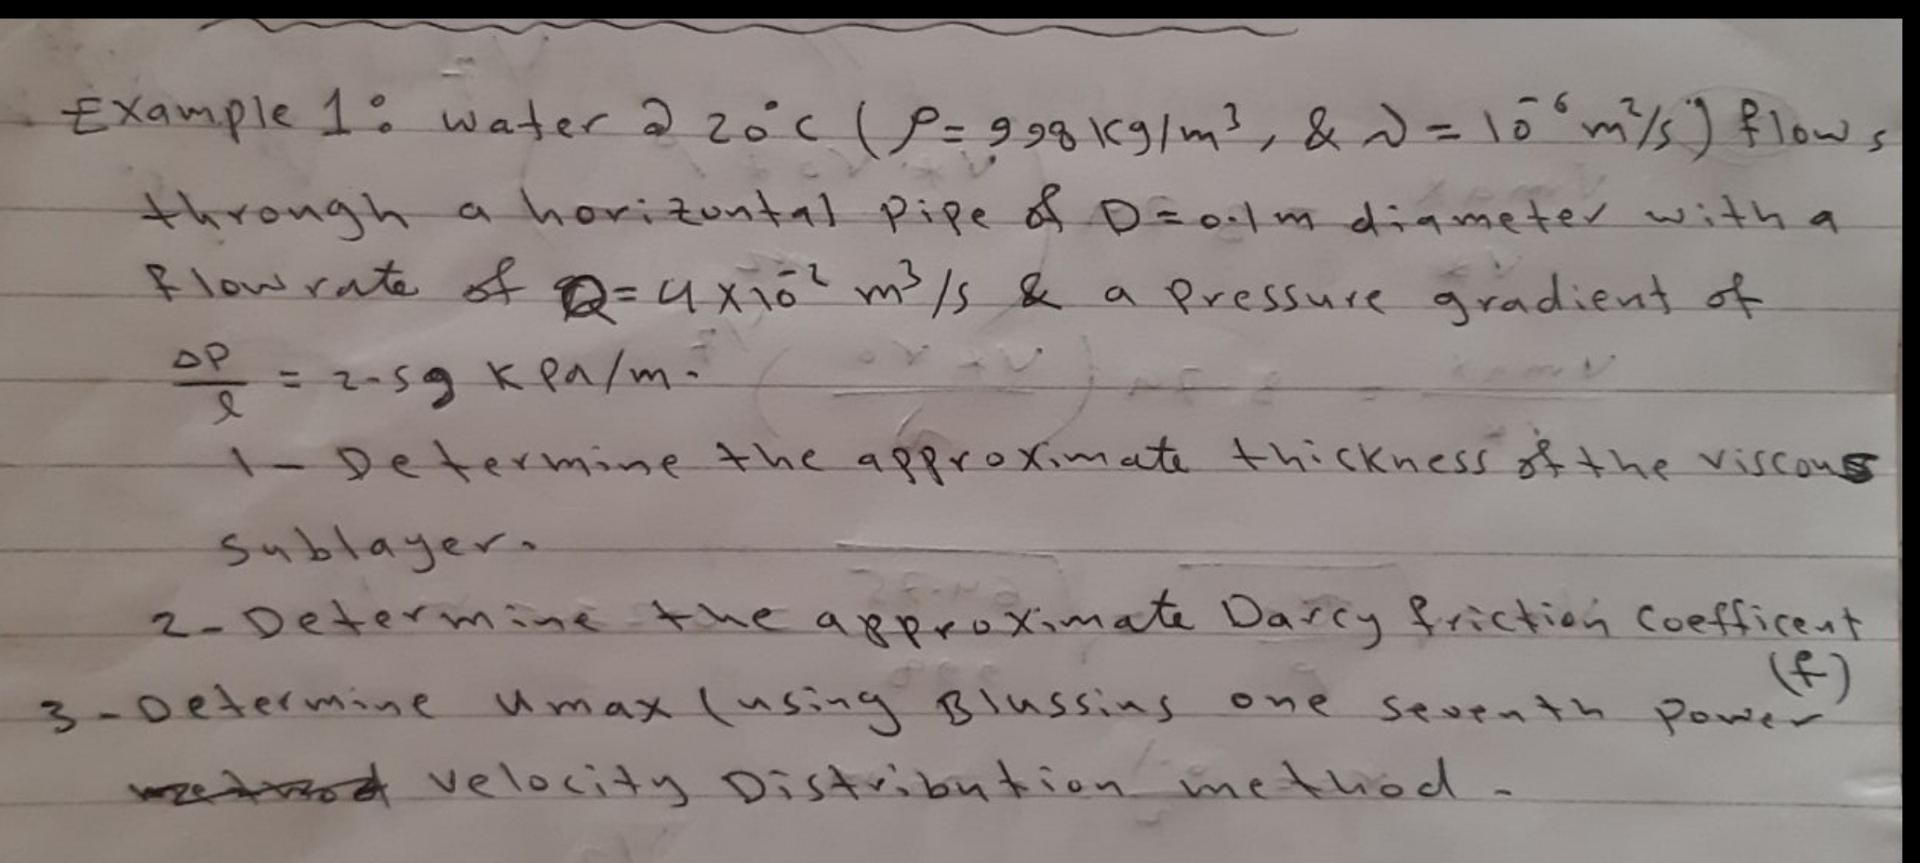 Example 1: water @ 20°C (ρ = 998 kg/m³, & ν = 10⁻⁶ m²/s) flows
through a horizontal pipe of D = 0.1 m diameter with a
flow rate of Q = 4 × 10⁻² m³/s & a pressure gradient of
ΔP/l = 2.59 kPa/m.
1 - Determine the approximate thickness of the viscous
sublayer.
2 - Determine the approximate Darcy friction coefficent
(f)
3 - Determine umax (using Blussius one seventh power
velocity Distribution method.